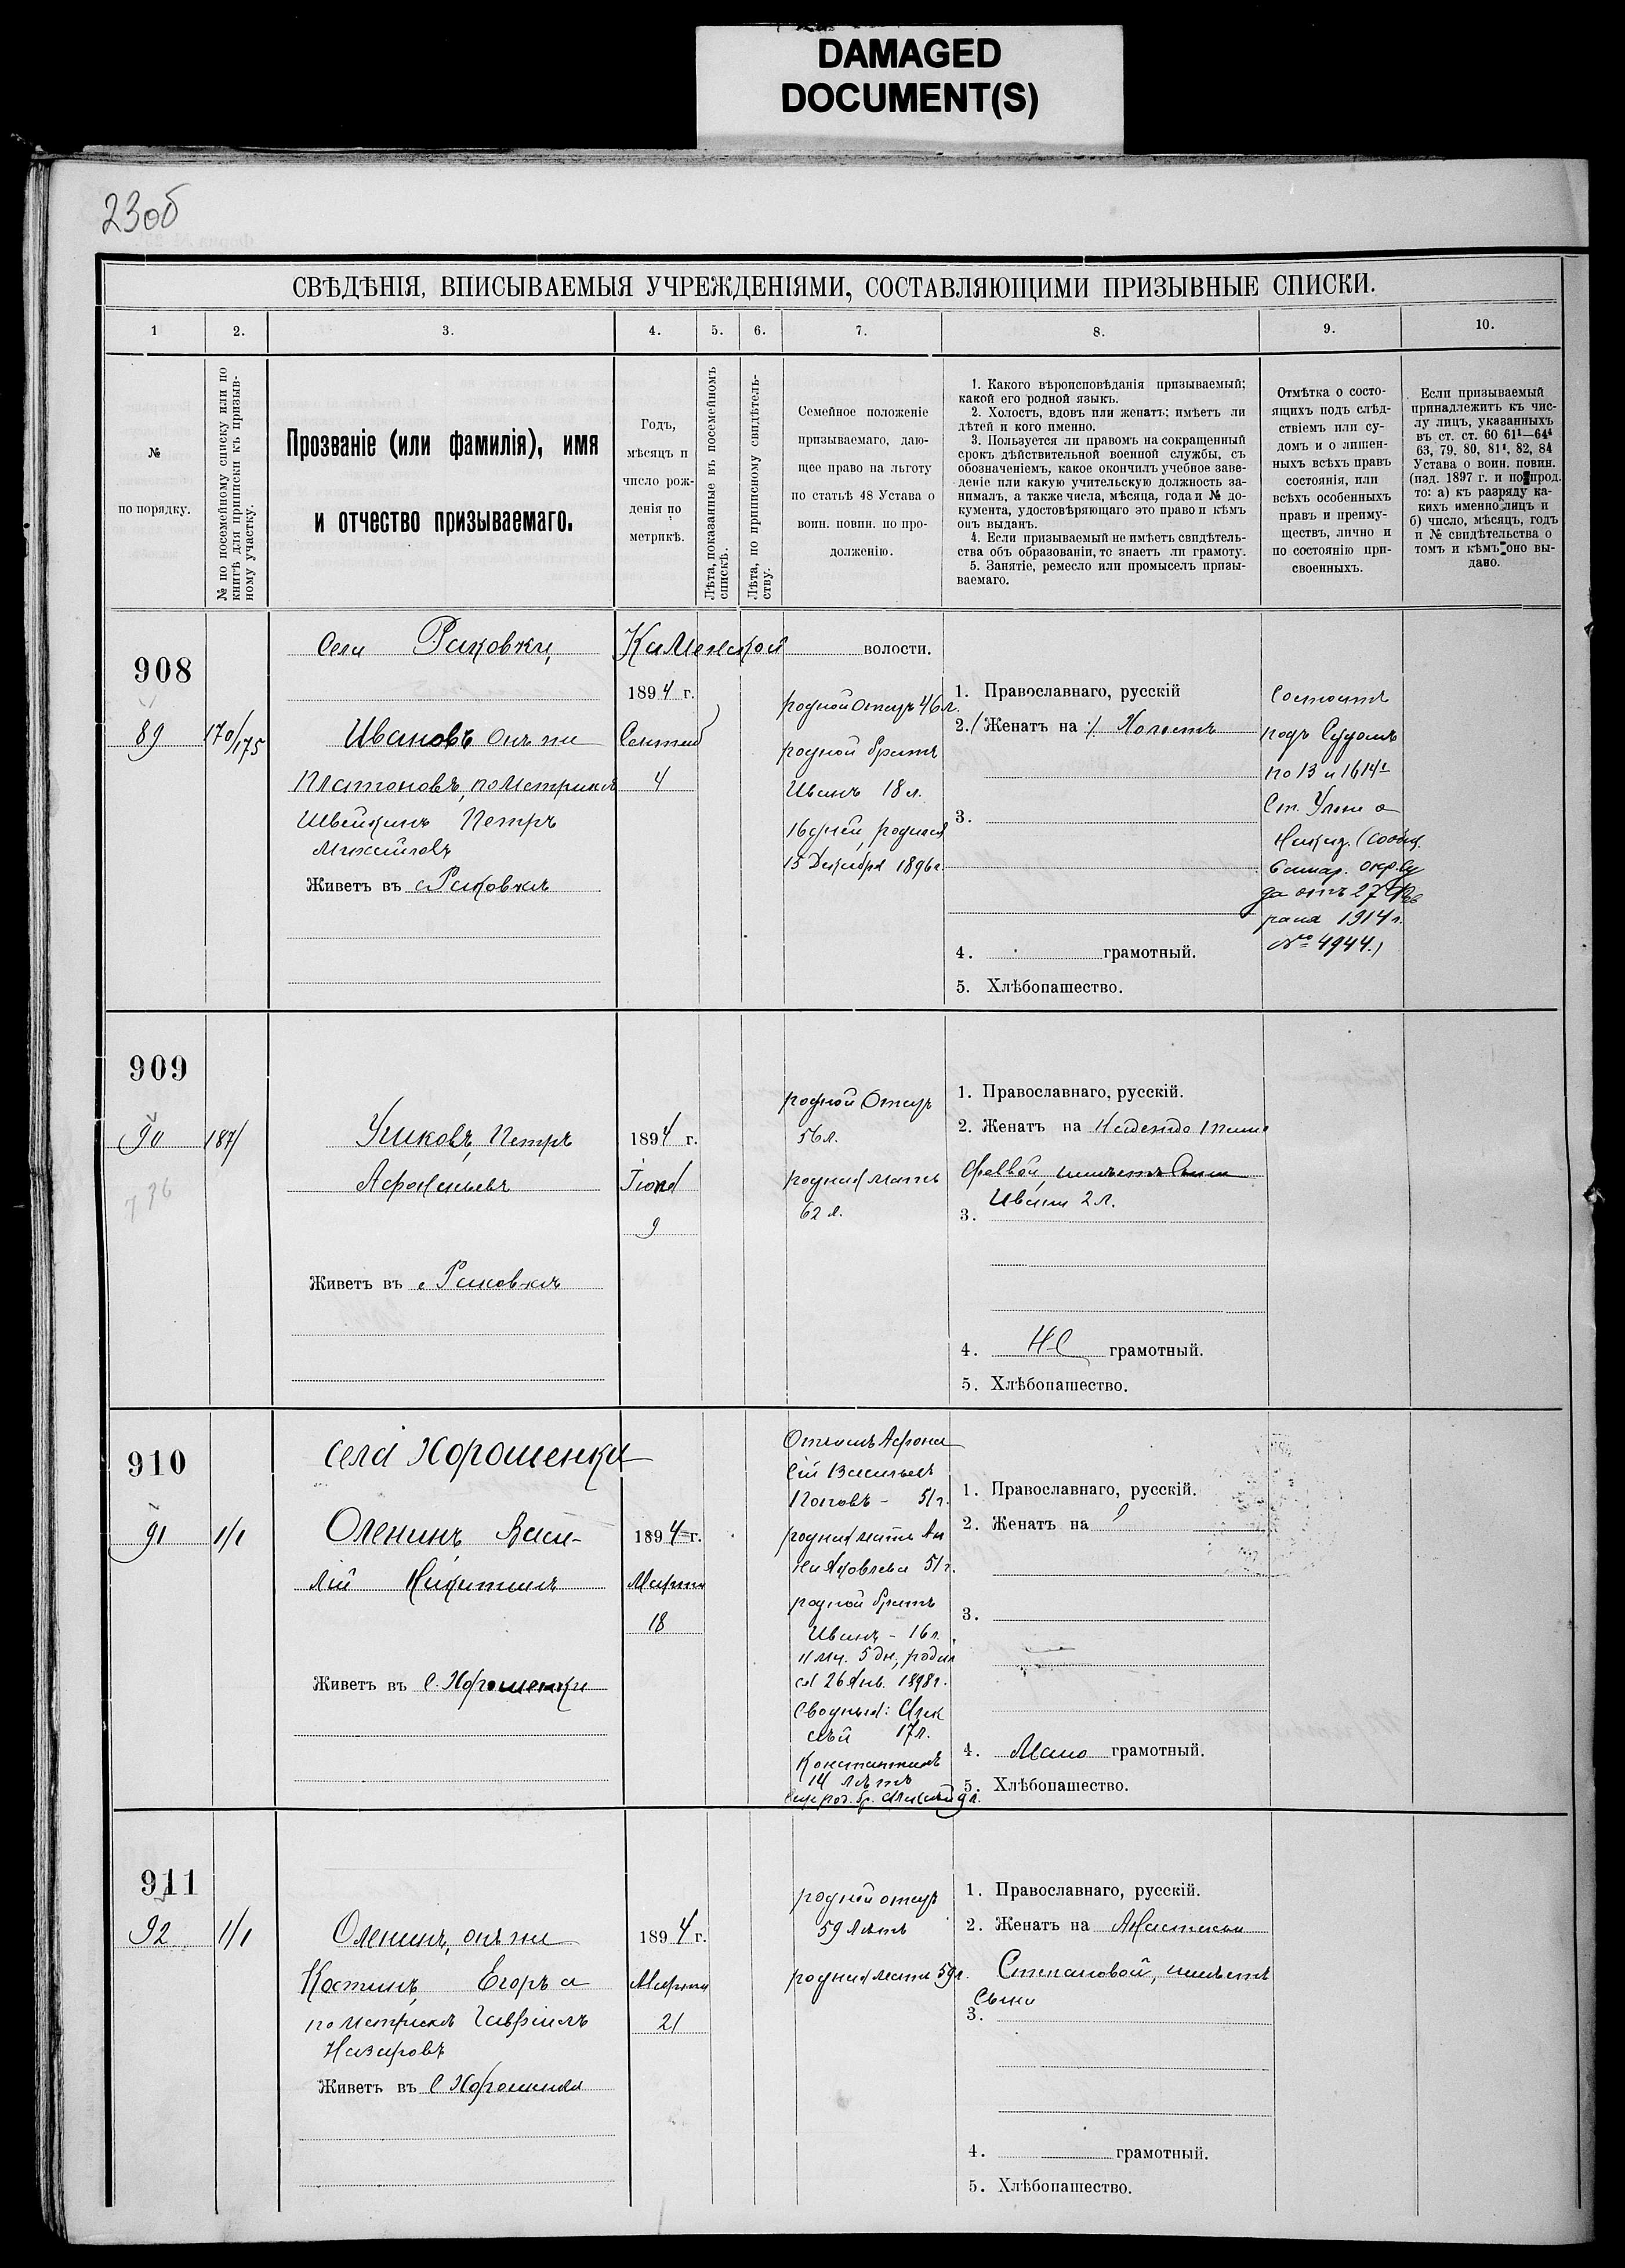 DAMAGED
DOCUMENT(S)
23об
СВѢДѢНІЯ, ВПИСЫВАЕМЫЯ УЧРЕЖДЕНІЯМИ, СОСТАВЛЯЮЩИМИ ПРИЗЫВНЫЕ СПИСКИ.
1 2. 3. 4. 5. 6. 7. 8. 9. 10.
№
по порядку.
№ по посемейному списку или по
книгѣ для приписки къ призыв-
ному участку.
Прозваніе (или фамилія), имя
и отчество призываемаго.
Годъ,
мѣсяцъ и
число рож-
денія по
метрикѣ.
Лѣта, показанные въ посемейномъ
спискѣ.
Лѣта, по приписному свидѣтель-
ству.
Семейное положеніе
призываемаго, даю-
щее право на льготу
по статьѣ 48 Устава о
воин. повин. по про-
долженію.
1. Какого вѣроисповѣданія призываемый;
какой его родной языкъ.
2. Холостъ, вдовъ или женатъ; имѣетъ ли
дѣтей и кого именно.
3. Пользуется ли правомъ на сокращенный
срокъ дѣйствительной военной службы, съ
обозначеніемъ, какое окончилъ учебное заве-
деніе или какую учительскую должность за-
нималъ, а также числа, мѣсяца, года и № до-
кумента, удостовѣряющаго это право и кѣмъ
онъ выданъ.
4. Если призываемый не имѣетъ свидѣтель-
ства объ образованіи, то знаетъ ли грамоту.
5. Занятіе, ремесло или промыселъ призы-
ваемаго.
Отмѣтка о состо-
ящихъ подъ слѣд-
ствіемъ или су-
домъ и о лишен-
ныхъ всѣхъ правъ
состоянія, или
всѣхъ особенныхъ
правъ и преиму-
ществъ, лично и
по состоянію при-
своенныхъ.
Если призываемый
принадлежитъ къ чис-
лу лицъ, указанныхъ
въ ст. ст. 60 61¹—64⁴
63, 79. 80, 81¹, 82, 84
Устава о воин. повин.
(изд. 1897 г. и по прод.
то: а) къ разряду ка-
кихъ именно лицъ и
б) число, мѣсяцъ, годъ
и № свидѣтельства о
томъ и кѣмъ оно вы-
дано.
Села Раковки, Каменской волости.
908
89 170/175
Ивановъ онъ же
Платоновъ, по метрикѣ
Швейкинъ Петръ
Михайловъ
Живетъ въ с Раковкѣ
1894 г.
Сентяб
4
родной отецъ 46 л.
родной братъ
Иванъ 18 л.
16 дней, родился
15 Декабря 1896 г.
1. Православнаго, русскій
2. /Женатъ на :/ Холостъ
3.
4. грамотный.
5. Хлѣбопашество.
Состоитъ
подъ Судомъ
по 13 и 1614¹
Ст. Улож о
Наказ. (сообщ.
Самар. окр. Су
да отъ 27 Фев
раля 1914 г.
№ 4944.)
909
90 187/
736
Ушковъ, Петръ
Афонасьевъ
Живетъ въ с Раковкѣ
1894 г.
Іюня
9
родной Отецъ
56 л.
родная мать
62 л.
1. Православнаго, русскій.
2. Женатъ на Надежде Тимо
феевой, имѣетъ Сына
Ивана 2 л.
3.
4. НЕ грамотный.
5. Хлѣбопашество.
910
91 1/1
села Хорошенки
Оленинъ Васи-
лій Никитинъ
Живетъ въ С. Хорошенки
1894 г.
Марта
18
Отчимъ Афона
сій Васильевъ
Поповъ - 51 г.
родная мать Ан
на Яковлева 51 г.
родной братъ
Иванъ - 16 л.
11 мц. 5 дн, родил
ся 26 Янв. 1898 г.
Сводныя: Алек
сѣй 17 л.
Константинъ
14 лѣтъ
еще род. бр. Алексѣй 9 л.
1. Православнаго, русскій.
2. Женатъ на
3.
4. Мало грамотный.
5. Хлѣбопашество.
911
92 1/1
Оленинъ, онъ же
Костинъ, Егоръ а
по метрикѣ Гавріилъ
Назаровъ
Живетъ въ С Хорошенки
1894 г.
Марта
21
родной отецъ
59 лѣтъ
родная мать 59 л.
1. Православнаго, русскій.
2. Женатъ на Анастасіи
Степановой, имѣетъ
Сына
3.
4. грамотный.
5. Хлѣбопашество.